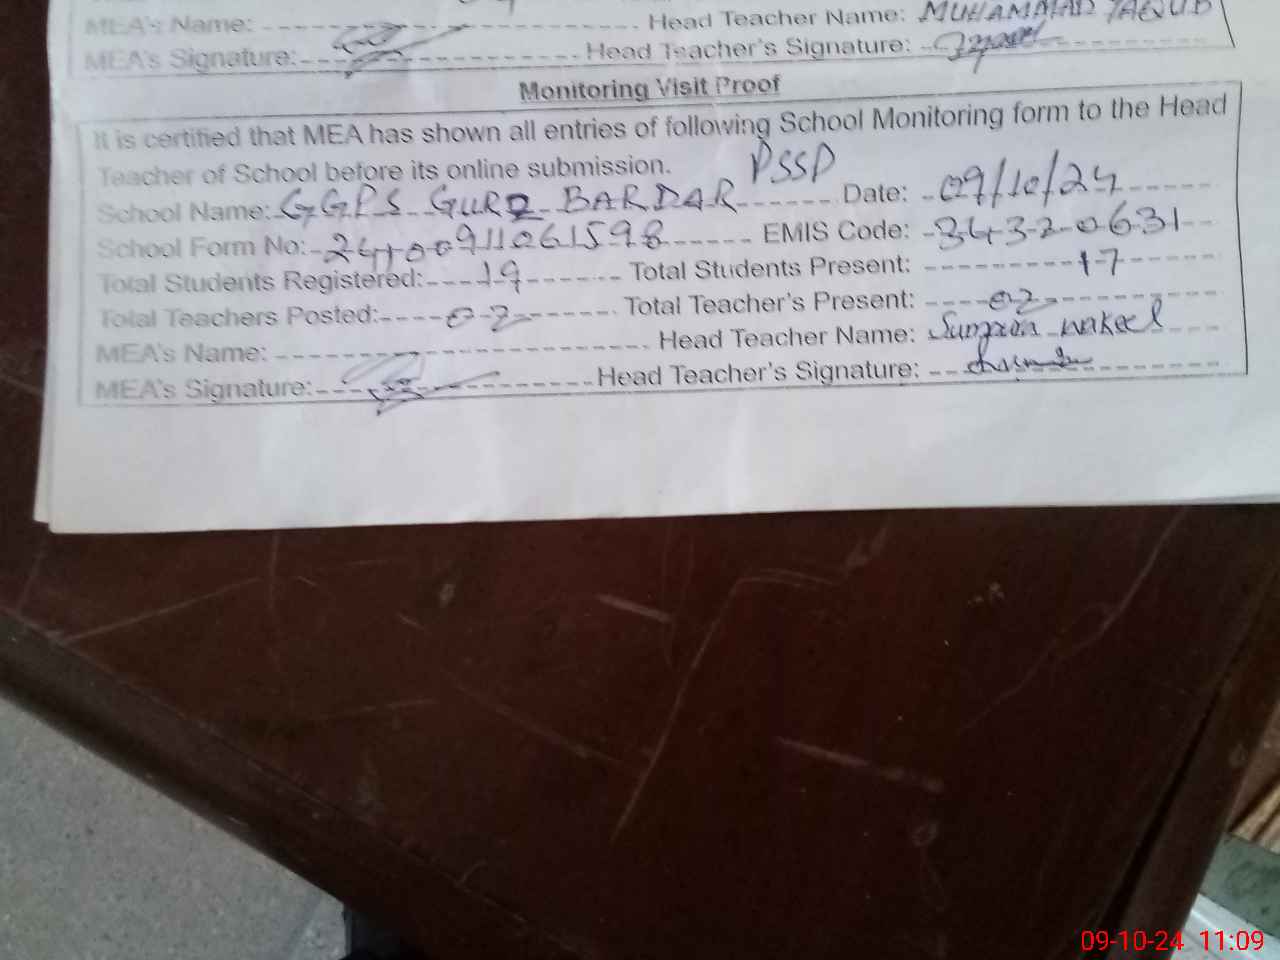 MEA's Name: Head Teacher Name: MUHAMMAD YAQUB
MEA's Signature: Head Teacher's Signature:
Monitoring Visit Proof
It is certified that MEA has shown all entries of following School Monitoring form to the Head
Teacher of School before its online submission. PSSP
School Name: GGPS GURZ BARDAR Date: 09/10/24
School Form No: 24100911061598 EMIS Code: 34320631
Total Students Registered: 19 Total Students Present: 17
Total Teachers Posted: 02 Total Teacher's Present: 02
MEA's Name: Head Teacher Name: wakeel
MEA's Signature: Head Teacher's Signature:
09-10-24 11:09